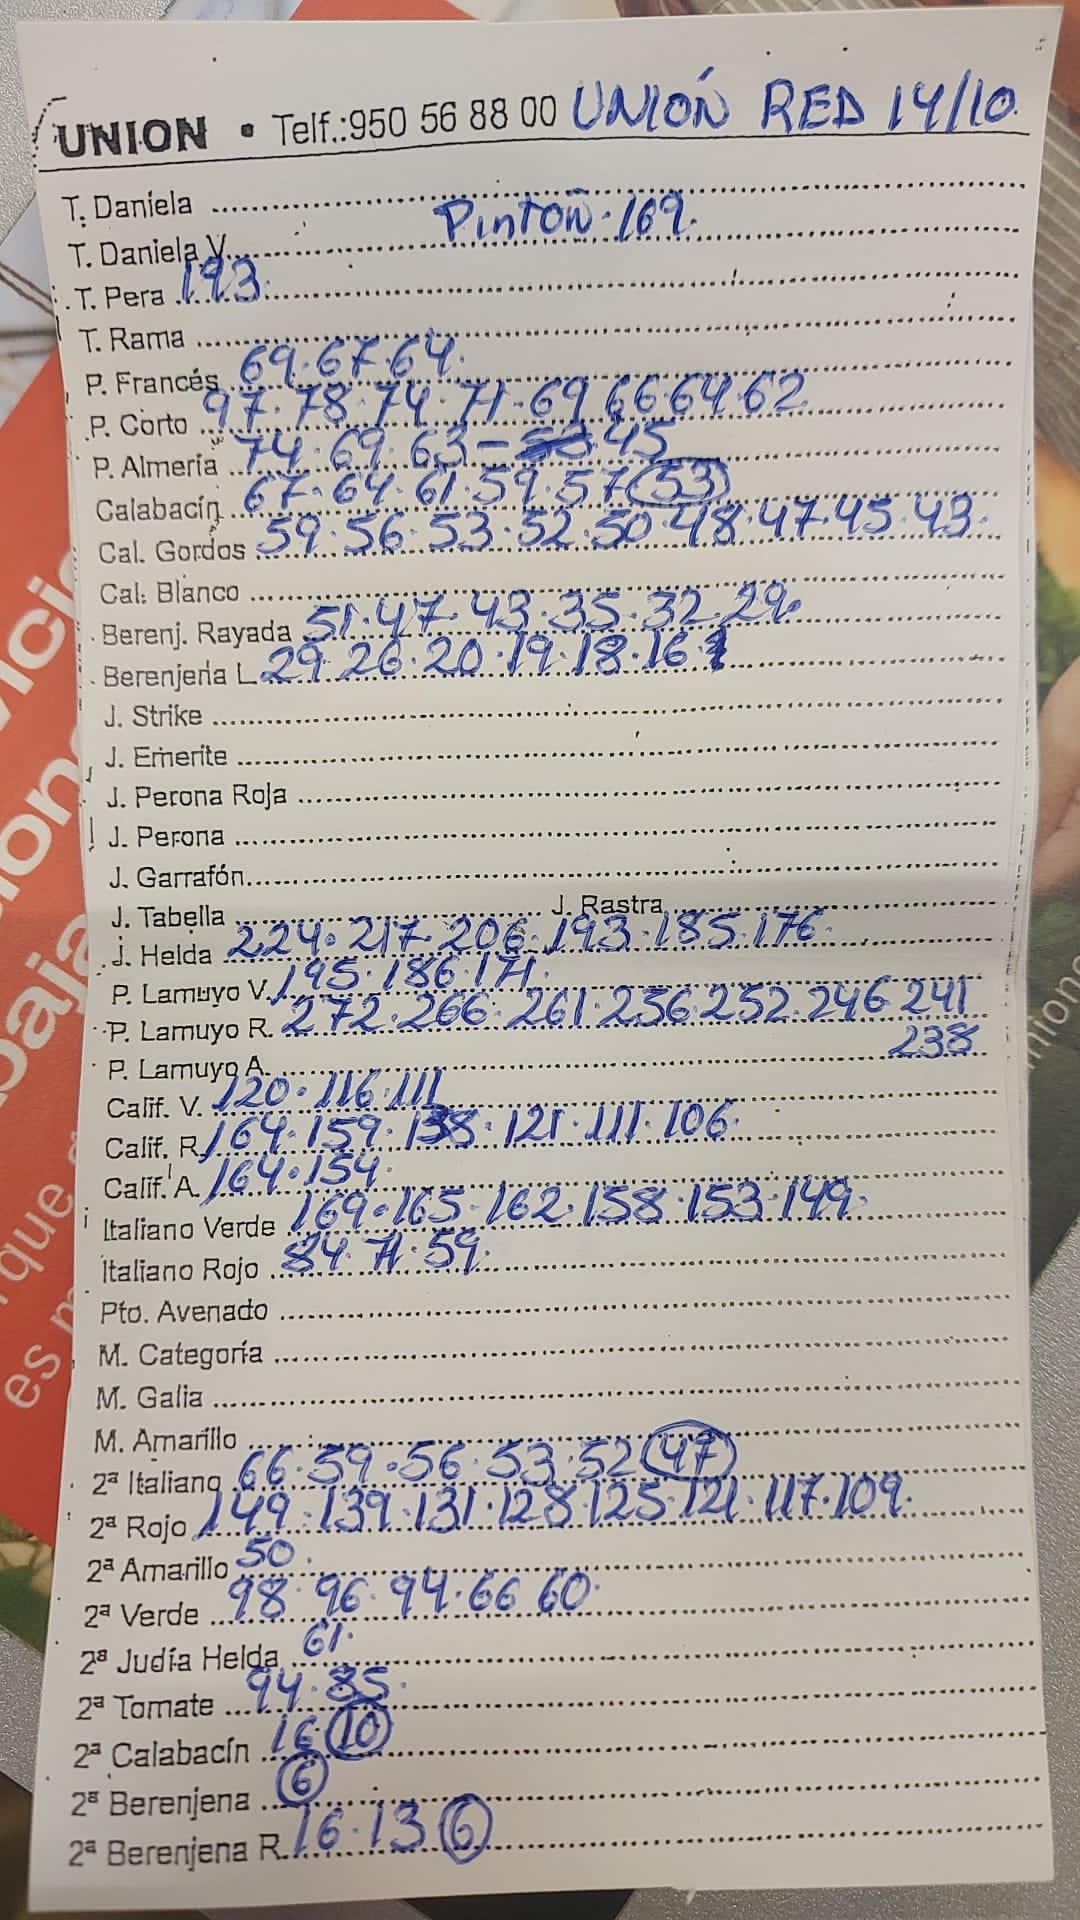 UNION • Telf.:950 56 88 00 UNIÓN RED 14/10.
T. Daniela
Pintón · 169.
T. Daniela V.
T. Pera 193.
T. Rama
P. Francés 69. 67. 64.
P. Corto 97. 78. 74. 71. 69 66 64. 62
P. Almería 74. 69. 63 - 45
Calabacín 67. 64. 61. 59. 57 (53)
Cal. Gordos 59. 56. 53. 52. 50. 48. 47. 45. 43.
Cal. Blanco
Berenj. Rayada 51. 47. 43. 35. 32. 29.
Berenjena L. 29. 26. 20. 19. 18. 16.
J. Strike
J. Emerite
J. Perona Roja
J. Perona
J. Garrafón
J. Tabella J. Rastra
J. Helda 224. 217. 206. 193. 185. 176.
P. Lamuyo V. 195. 186. 171.
P. Lamuyo R. 272. 266. 261. 256 252. 246 241
238
P. Lamuyo A.
Calif. V. 120. 116. 111
Calif. R. 164. 159. 138. 121. 111. 106.
Calif. A. 164. 154.
Italiano Verde 169. 165. 162. 158. 153. 149.
Italiano Rojo 84. 71. 59.
Pto. Avenado
M. Categoría
M. Galia
M. Amarillo
2ª Italiano 66. 59. 56. 53. 52 (47)
2ª Rojo 149. 139. 131. 128. 125. 121. 117. 109.
2ª Amarillo 50.
2ª Verde 98. 96. 94. 66 60.
2ª Judía Helda 61.
2ª Tomate 94. 85.
2ª Calabacín 16 (10)
2ª Berenjena (6)
2ª Berenjena R. 16. 13 (6)
que
es